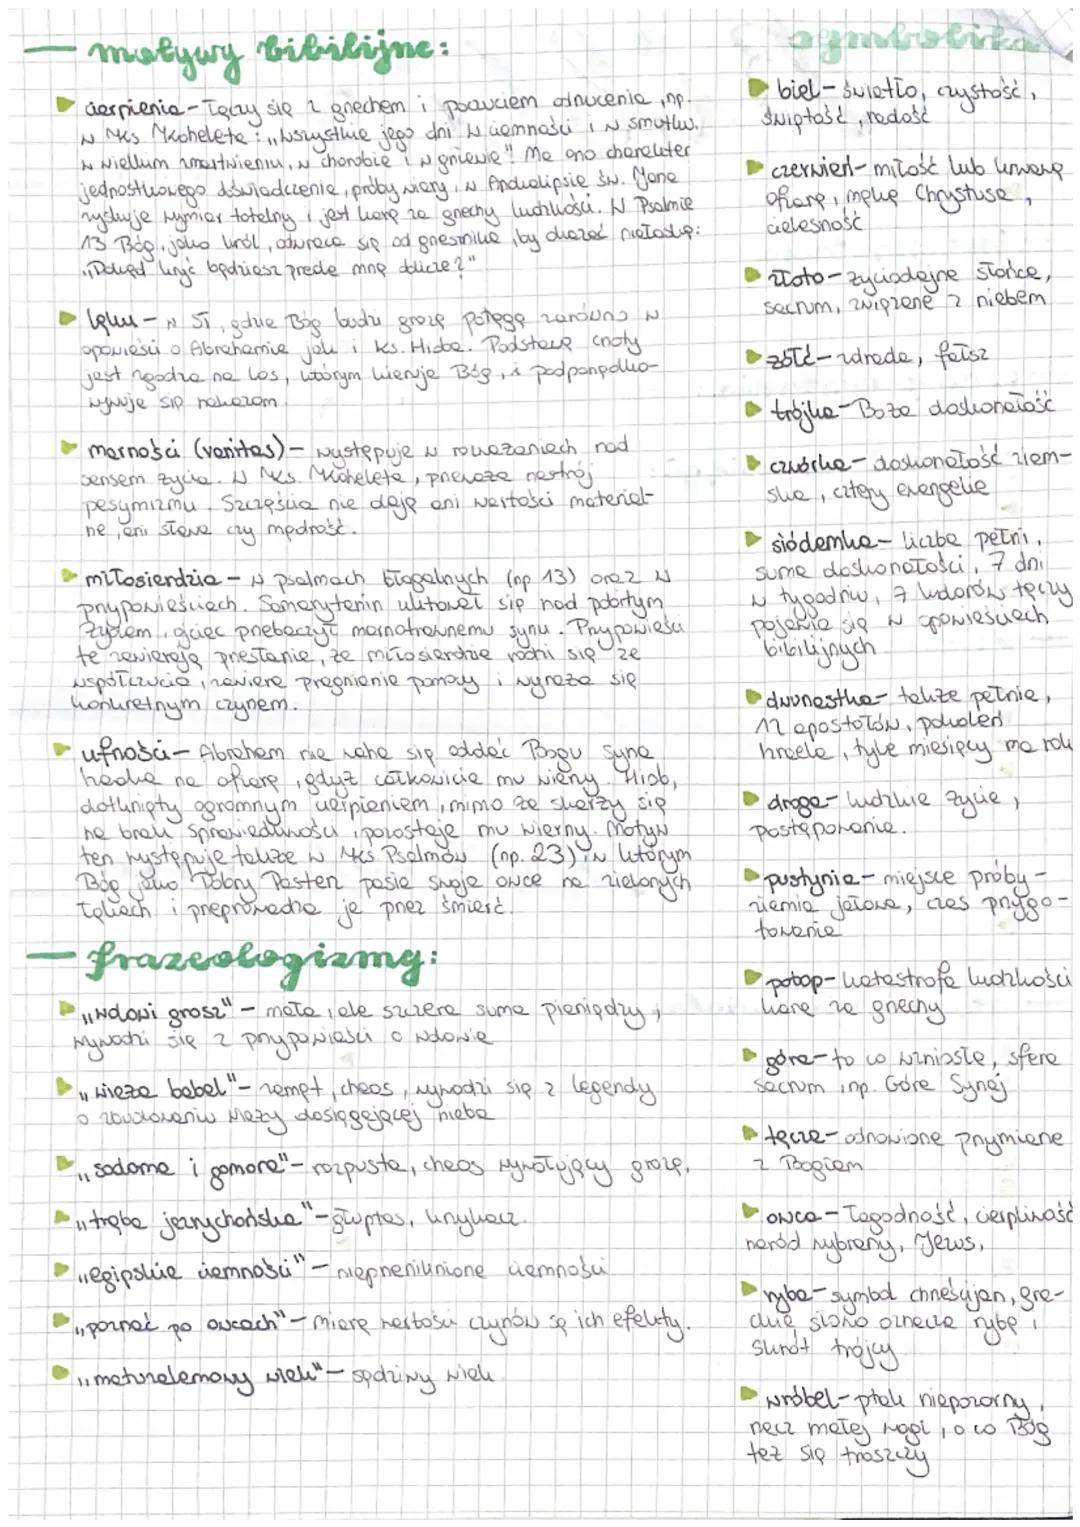 — motywy bibilijne:
cierpienia – łączy się z grzechem i poczuciem odrzucenia, np.
w Ks Koheleta: „wszystkie jego dni w ciemności i w smutku.
w wielkim zmartwieniu, w chorobie i w gniewie" Ma ono charakter
jednostkowego doświadczenia, próby wiary, w Apokalipsie św. Jana
zyskuje wymiar totalny i jest karą za grzechy ludzkości. W Psalmie
13 Bóg, jako król, odwraca się od grzesznika, by okazać niełaskę:
„Dokąd kryć będziesz przede mną oblicze?"
lęku – w ST, gdzie Bóg budzi grozę potęgą zarówno w
opowieści o Abrahamie jak i Ks. Hioba. Podstawą cnoty
jest zgoda na los, którym kieruje Bóg, i podporządko-
wywuje się nakazom.
marności (vanitas) – występuje w rozważaniach nad
sensem życia. W Ks. Koheleta, przeważa nastrój
pesymizmu. Szczęścia nie dają ani wartości material-
ne, ani sława czy mądrość.
miłosierdzia – w psalmach błagalnych (np 13) oraz w
przypowieściach. Samarytanin ulitował się nad pobitym
Żydem, ojciec przebaczył marnotrawnemu synu. Przypowieści
te zawierają przesłanie, że miłosierdzie rodzi się ze
współczucia, zawiera pragnienie pomocy i wyraża się
konkretnym czynem.
ufności – Abraham nie waha się oddać Bogu syna
Izaaka na ofiarę, gdyż całkowicie mu wierzy. Hiob,
dotknięty ogromnym cierpieniem, mimo że skarży się
na brak sprawiedliwości, pozostaje mu wierny. Motyw
ten występuje także w Ks Psalmów (np. 23), w którym
Bóg jako Dobry Pasterz pasie swoje owce na zielonych
łąkach i przeprowadza je przez śmierć.
— frazeologizmy:
„wdowi grosz" – mała, ale szczera suma pieniędzy,
wywodzi się z przypowieści o wdowie
„wieża babel" – zamęt, chaos, wywodzi się z legendy
o zbudowaniu wieży dosięgającej nieba
„sodoma i gomora" – rozpusta, chaos wywołujący grozę,
„trąba jerychońska" – głuptas, krzykacz.
„egipskie ciemności" – nieprzeniknione ciemności
„poznać po owocach" – miarą wartości czynów są ich efekty.
„matuzalemowy wiek" – sędziwy wiek
symbolika
biel – światło, czystość,
świętość, radość
czerwień – miłość lub krwawa
ofiara, męka Chrystusa,
cielesność
złoto – życiodajne słońce,
sacrum, związane z niebem
żółć – zdrada, fałsz
trójka – Boża doskonałość
czwórka – doskonałość ziem-
ska, cztery ewangelie
siódemka – liczba pełni,
suma doskonałości, 7 dni
w tygodniu, 7 kolorów tęczy
pojawia się w opowieściach
bibilijnych
dwunastka – także pełnia,
12 apostołów, pokoleń
Izraela, tyle miesięcy ma rok
droga – ludzkie życie,
postępowanie.
pustynia – miejsce próby –
ziemia jałowa, czas przygo-
towania
potop – katastrofa ludzkości
kara za grzechy
góra – to co wzniosłe, sfera
sacrum, np. Góra Synaj
tęcza – odnowione przymierze
z Bogiem
owca – łagodność, cierpliwość
naród wybrany, Jezus,
ryba – symbol chrześcijan, gre-
ckie słowo oznacza rybę i
skrót trójcy
wróbel – ptak niepozorny,
rzecz małej wagi, o co Bóg
też się troszczy